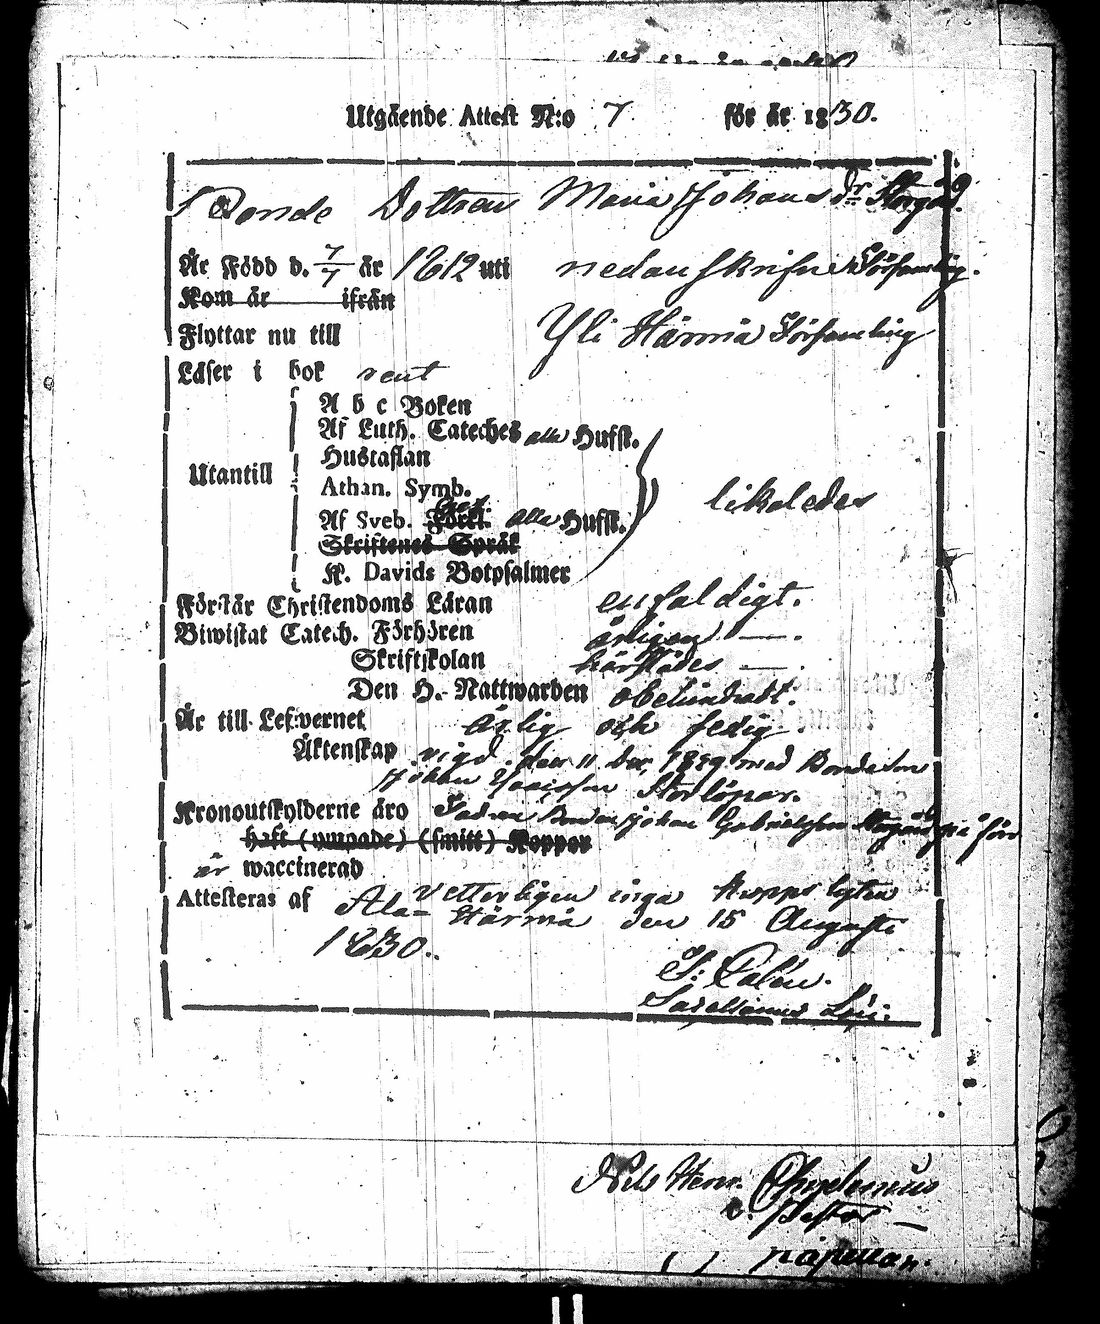 Utgående Attest N:o 7 för år 1830.
Bonde Dottren Maria Johansdr Storgård.
Är Född d. 7/7 år 1812 uti nedanskrifne Församling.
Kom år ifrån
Flyttar nu till Yli Härmä Församling
Läser i bok rent
A b c Boken
Af Luth. Cateches alla Hufst.
Hustaflan
Utantill
Athan. Symb.
likaledes
Af Sveb. Förkl. alla Hufst.
Skriftenes Språk
K. Davids Botpsalmer
Förstår Christendoms Läran enfaldigt.
Biwistat Catech. Förhören årligen —.
Skriftskolan härstädes —.
Den H. Nattwarden obehindradt.
Är till Lefwernet ärlig och ledig.
Äktenskap vigd den 11 med Bondeson
Johan Storlöpar.
Kronoutskylderne äro Fadren Bonden Johan Gabrielsson Storgård
haft (ympade) (smitt) Koppor
är waccinerad
Attesteras af Vetterligen inga kropps lyten
Ala-Härmä den 15 Augusti
1830.
Nils Henr. Chydenius
v. Pastor
kapellan.